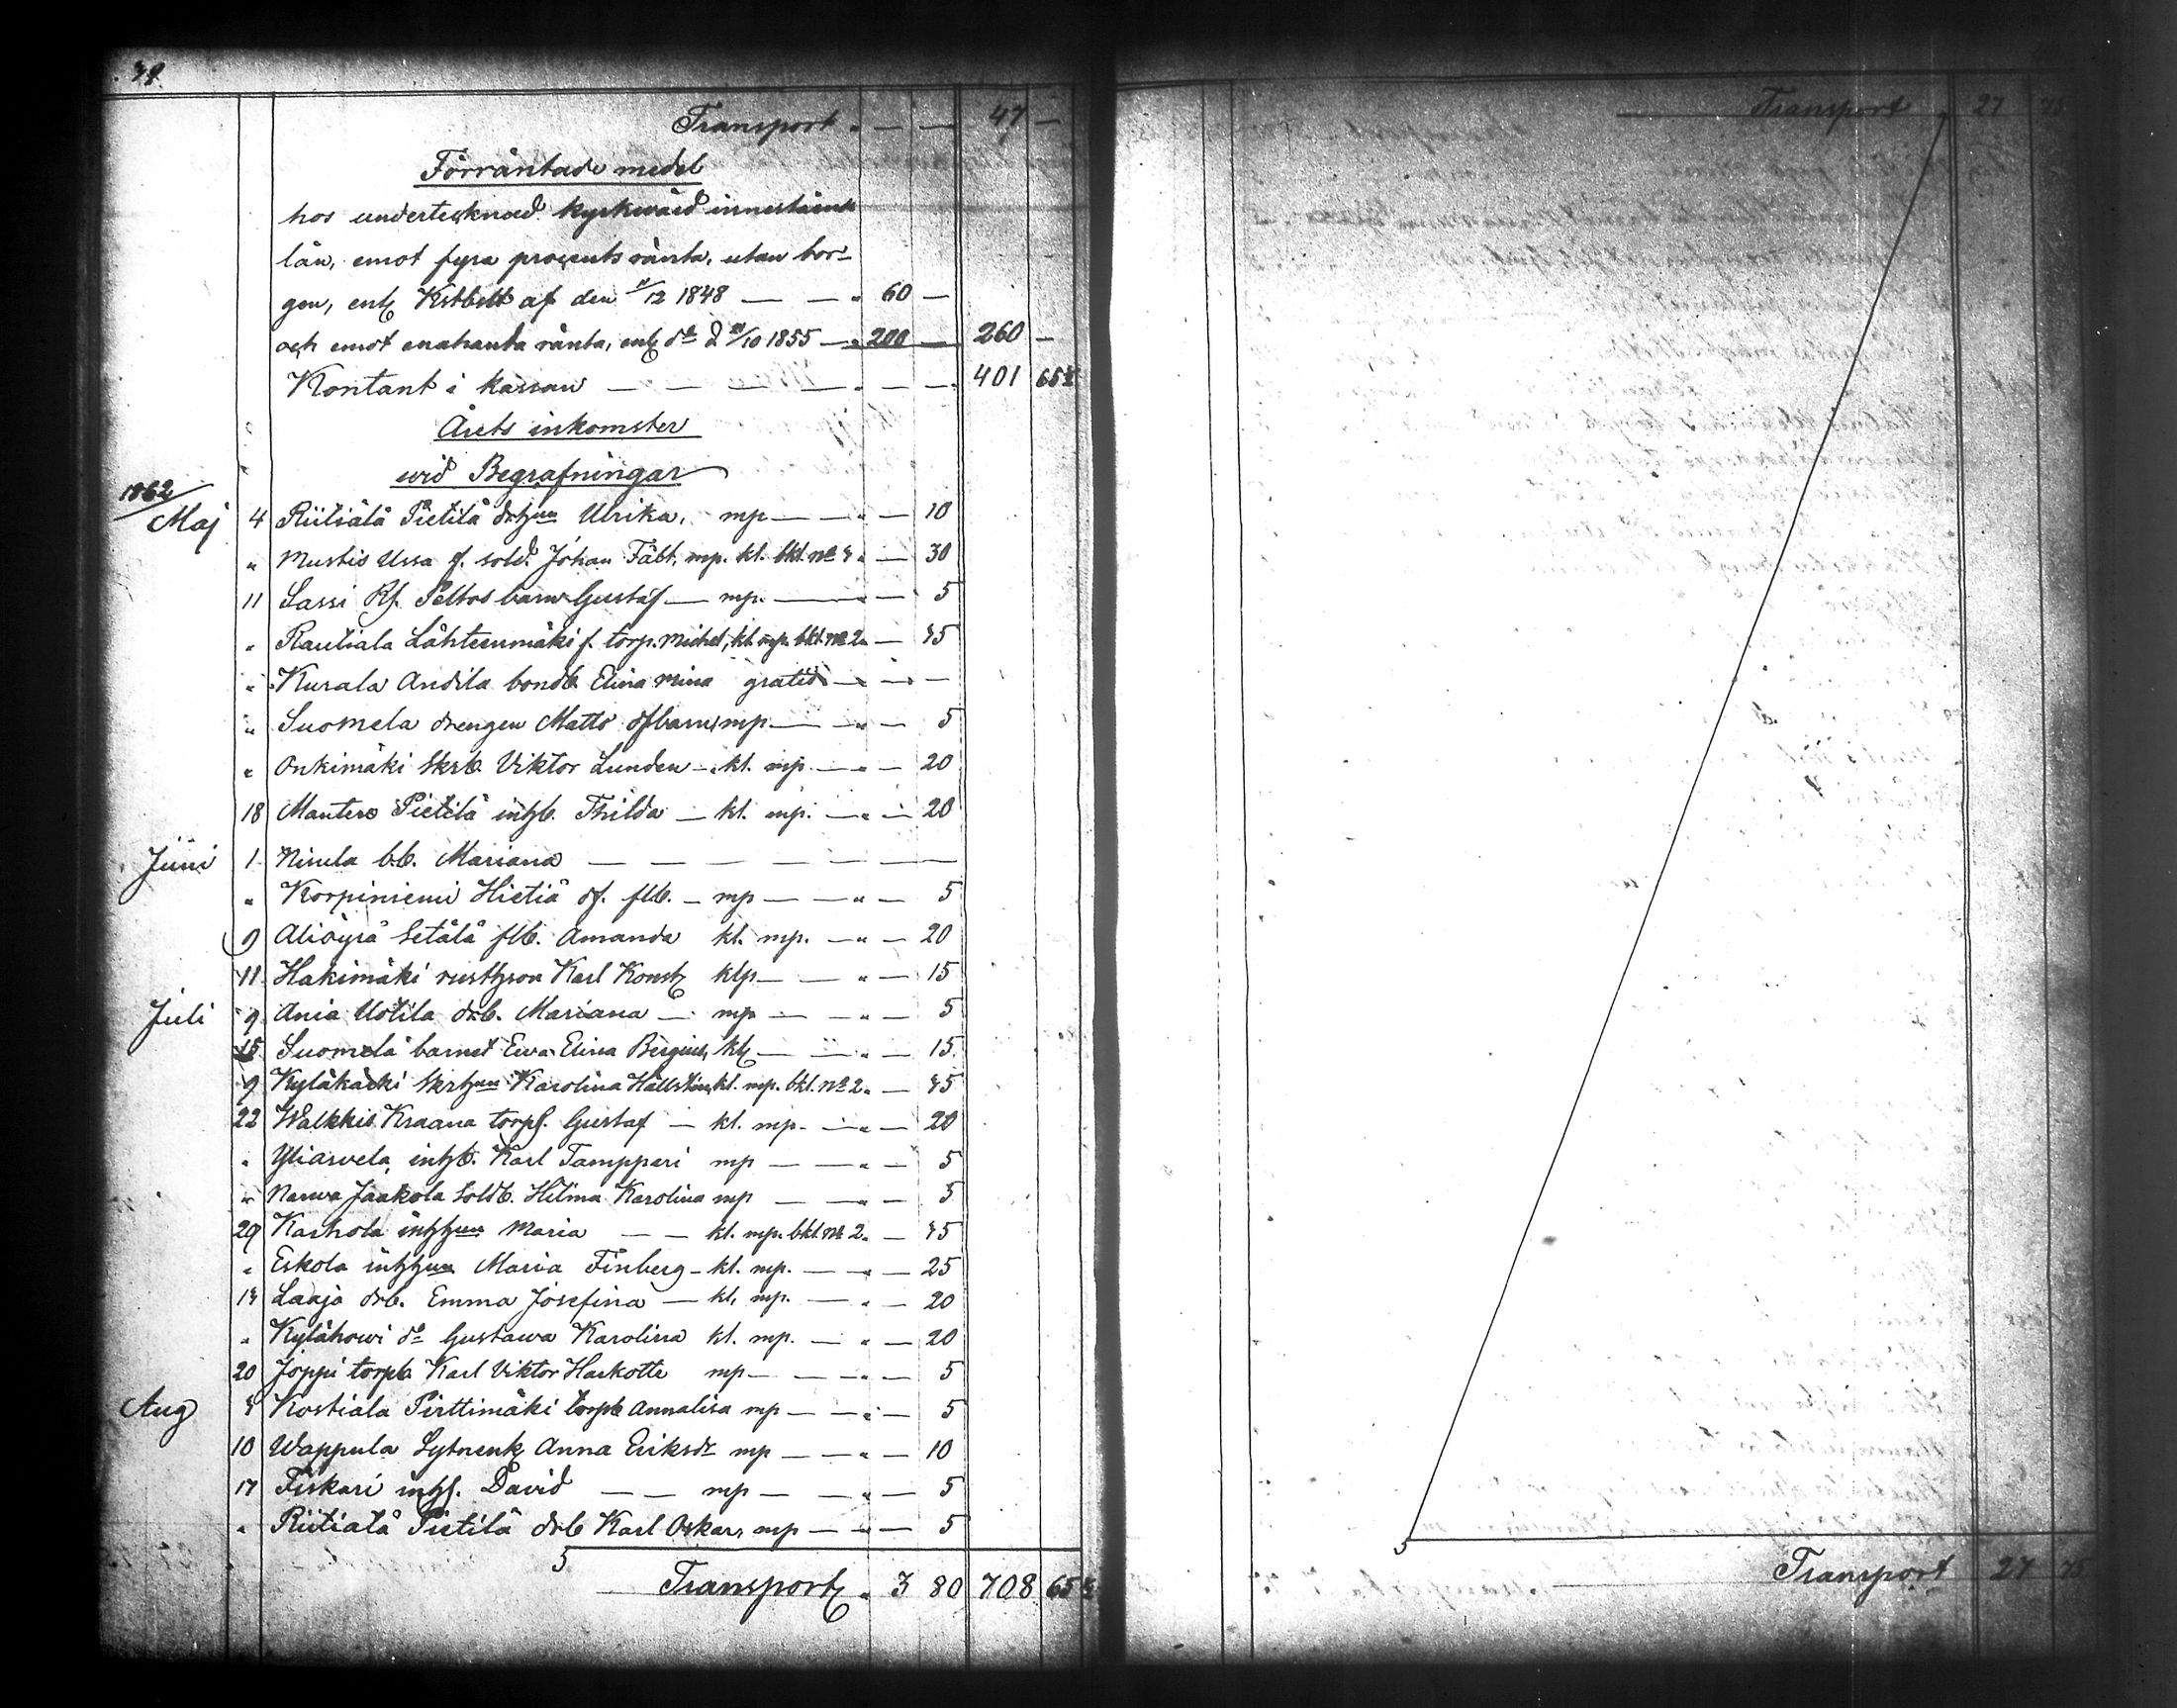 Transport „ — — 47 —
Förräntade medel
hos undertecknad kyrkvärd innestående
lån, emot fyra procents ränta, utan bor-
gen, enl. af den /12 1848 — — „ 60 —
och emot enahanda ränta, enl. do d /10 1855 — „ 200 — 260 —
Kontant i kassan — — — — „ — — 401 65½
Årets inkomster
wid Begrafningar
1862
Maj 4 Riitiälä Pietilä Ulrika, mp — — „ — 10
„ Mustis Ussa f. sold. Johan Fält, mp. kl. bkl. No „ — 30
11 Sassi Rf. Peltos barn Gustaf — mp. — „ — 5
„ Rautiala Lähteenmäki f. torp. Michel, kl. mp. bkl. No 2 „ — 45
„ Kurala Andila bondb. Elina Mina gratis — „ — —
„ Suomela drengen Matts dfbarn, mp — „ — 5
„ Onkimäki Skrb. Viktor Lunden — kl. mp — „ — 20
18 Mantere Pietilä inhb. Thilda — kl. mp. — „ — 20
Juni 1 Nirula bb. Mariana — — — — — —
„ Korpiniemi Hietiä df. flb. — mp — — „ — 5
9 Aliöyrä Setälä flb. Amanda kl. mp. — „ — 20
11 Hakimäki rusthson Karl Konst. klp — — „ — 15
Juli 9 Ania Uotila drb. Mariana — mp — — „ — 5
15 Suomela barnet Ewa Elina — — „ — 15
9 Karolina Hällsten, kl. mp. bkl. No 2 „ — 45
22 Walkkis Kraana torps. Gustaf — kl. mp — „ — 20
„ Yliarvela, inhb. Karl Tamppari mp — — „ — 5
„ Narwa Jaakola Soldb. Hilma Karolina mp — — „ — 5
29 Karhola Maria — — kl. mp. bkl. No 2 „ — 45
„ Eskola Maria Finberg — kl. mp. — „ — 25
14 Laajo drb. Emma Josefina — kl. mp. — „ — 20
„ do Gustawa Karolina kl. mp. — „ — 20
20 Joppi torpb. Karl Viktor Harkotte mp — — „ — 5
Aug 4 Kostiala Pirttimäki torpb Annalisa mp — — „ — 5
10 Wappula Sytnenk. Anna Eriksdr mp — — „ — 10
17 Fiskari inhs. David — — mp — — „ — 5
„ Riitialä Pietilä drb Karl Oskar, mp — „ — 5
Transport „ 3 80 708 65½
Transport „ 27 75
Transport 27 75